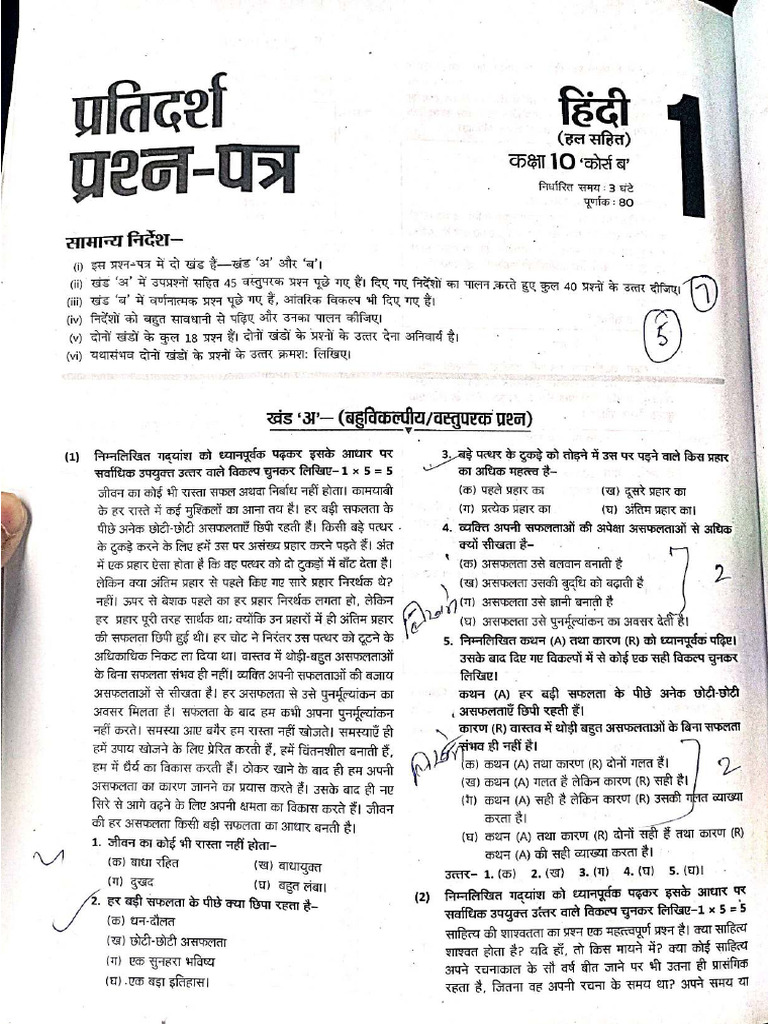 प्रतिदर्श
प्रश्न-पत्र
हिंदी
(हल सहित)
कक्षा 10 'कोर्स ब'
निर्धारित समय : 3 घंटे
पूर्णांक : 80
1
सामान्य निर्देश—
(i) इस प्रश्न-पत्र में दो खंड हैं—खंड 'अ' और 'ब'।
(ii) खंड 'अ' में उपप्रश्नों सहित 45 वस्तुपरक प्रश्न पूछे गए हैं। दिए गए निर्देशों का पालन करते हुए कुल 40 प्रश्नों के उत्तर दीजिए।
(iii) खंड 'ब' में वर्णनात्मक प्रश्न पूछे गए हैं, आंतरिक विकल्प भी दिए गए हैं।
(iv) निर्देशों को बहुत सावधानी से पढ़िए और उनका पालन कीजिए।
(v) दोनों खंडों के कुल 18 प्रश्न हैं। दोनों खंडों के प्रश्नों के उत्तर देना अनिवार्य है।
(vi) यथासंभव दोनों खंडों के प्रश्नों के उत्तर क्रमश: लिखिए।
5
खंड 'अ'— (बहुविकल्पीय/वस्तुपरक प्रश्न)
(1) निम्नलिखित गद्यांश को ध्यानपूर्वक पढ़कर इसके आधार पर
सर्वाधिक उपयुक्त उत्तर वाले विकल्प चुनकर लिखिए–1 × 5 = 5
जीवन का कोई भी रास्ता सफल अथवा निर्बाध नहीं होता। कामयाबी
के हर रास्ते में कई मुश्किलों का आना तय है। हर बड़ी सफलता के
पीछे अनेक छोटी-छोटी असफलताएँ छिपी रहती हैं। किसी बड़े पत्थर
के टुकड़े करने के लिए हमें उस पर असंख्य प्रहार करने पड़ते हैं। अंत
में एक प्रहार ऐसा होता है कि वह पत्थर को दो टुकड़ों में बाँट देता है।
लेकिन क्या अंतिम प्रहार से पहले किए गए सारे प्रहार निरर्थक थे?
नहीं। ऊपर से बेशक पहले का हर प्रहार निरर्थक लगता हो, लेकिन
हर प्रहार पूरी तरह सार्थक था; क्योंकि उन प्रहारों में ही अंतिम प्रहार
की सफलता छिपी हुई थी। हर चोट ने निरंतर उस पत्थर को टूटने के
अधिकाधिक निकट ला दिया था। वास्तव में थोड़ी-बहुत असफलताओं
के बिना सफलता संभव ही नहीं। व्यक्ति अपनी सफलताओं की बजाय
असफलताओं से सीखता है। हर असफलता से उसे पुनर्मूल्यांकन का
अवसर मिलता है। सफलता के बाद हम कभी अपना पुनर्मूल्यांकन
नहीं करते। समस्या आए बगैर हम रास्ता नहीं खोजते। समस्याएँ ही
हमें उपाय खोजने के लिए प्रेरित करती हैं, हमें चिंतनशील बनाती हैं,
हम में धैर्य का विकास करती हैं। ठोकर खाने के बाद ही हम अपनी
असफलता का कारण जानने का प्रयास करते हैं। उसके बाद ही नए
सिरे से आगे बढ़ने के लिए अपनी क्षमता का विकास करते हैं। जीवन
की हर असफलता किसी बड़ी सफलता का आधार बनती है।
1. जीवन का कोई भी रास्ता नहीं होता–
(क) बाधा रहित (ख) बाधायुक्त
(ग) दुखद (घ) बहुत लंबा।
2. हर बड़ी सफलता के पीछे क्या छिपा रहता है–
(क) धन-दौलत
(ख) छोटी-छोटी असफलता
(ग) एक सुनहरा भविष्य
(घ) एक बड़ा इतिहास।
3. बड़े पत्थर के टुकड़े को तोड़ने में उस पर पड़ने वाले किस प्रहार
का अधिक महत्त्व है–
(क) पहले प्रहार का (ख) दूसरे प्रहार का
(ग) प्रत्येक प्रहार का (घ) अंतिम प्रहार का।
4. व्यक्ति अपनी सफलताओं की अपेक्षा असफलताओं से अधिक
क्यों सीखता है–
(क) असफलता उसे बलवान बनाती है
(ख) असफलता उसकी बुद्धि को बढ़ाती है
(ग) असफलता उसे ज्ञानी बनाती है
(घ) असफलता उसे पुनर्मूल्यांकन का अवसर देती है।
2
5. निम्नलिखित कथन (A) तथा कारण (R) को ध्यानपूर्वक पढ़िए।
उसके बाद दिए गए विकल्पों में से कोई एक सही विकल्प चुनकर
लिखिए।
कथन (A) हर बड़ी सफलता के पीछे अनेक छोटी-छोटी
असफलताएँ छिपी रहती हैं।
कारण (R) वास्तव में थोड़ी बहुत असफलताओं के बिना सफलता
संभव ही नहीं है।
(क) कथन (A) तथा कारण (R) दोनों गलत हैं।
(ख) कथन (A) गलत है लेकिन कारण (R) सही है।
(ग) कथन (A) सही है लेकिन कारण (R) उसकी गलत व्याख्या
करता है।
(घ) कथन (A) तथा कारण (R) दोनों सही हैं तथा कारण (R)
कथन (A) की सही व्याख्या करता है।
2
उत्तर– 1. (क) 2. (ख) 3. (ग) 4. (घ) 5. (घ)।
(2) निम्नलिखित गद्यांश को ध्यानपूर्वक पढ़कर इसके आधार पर
सर्वाधिक उपयुक्त उत्तर वाले विकल्प चुनकर लिखिए–1 × 5 = 5
साहित्य की शाश्वतता का प्रश्न एक महत्त्वपूर्ण प्रश्न है। क्या साहित्य
शाश्वत होता है? यदि हाँ, तो किस मायने में? क्या कोई साहित्य
अपने रचनाकाल के सौ वर्ष बीत जाने पर भी उतना ही प्रासंगिक
रहता है, जितना वह अपनी रचना के समय था? अपने समय या